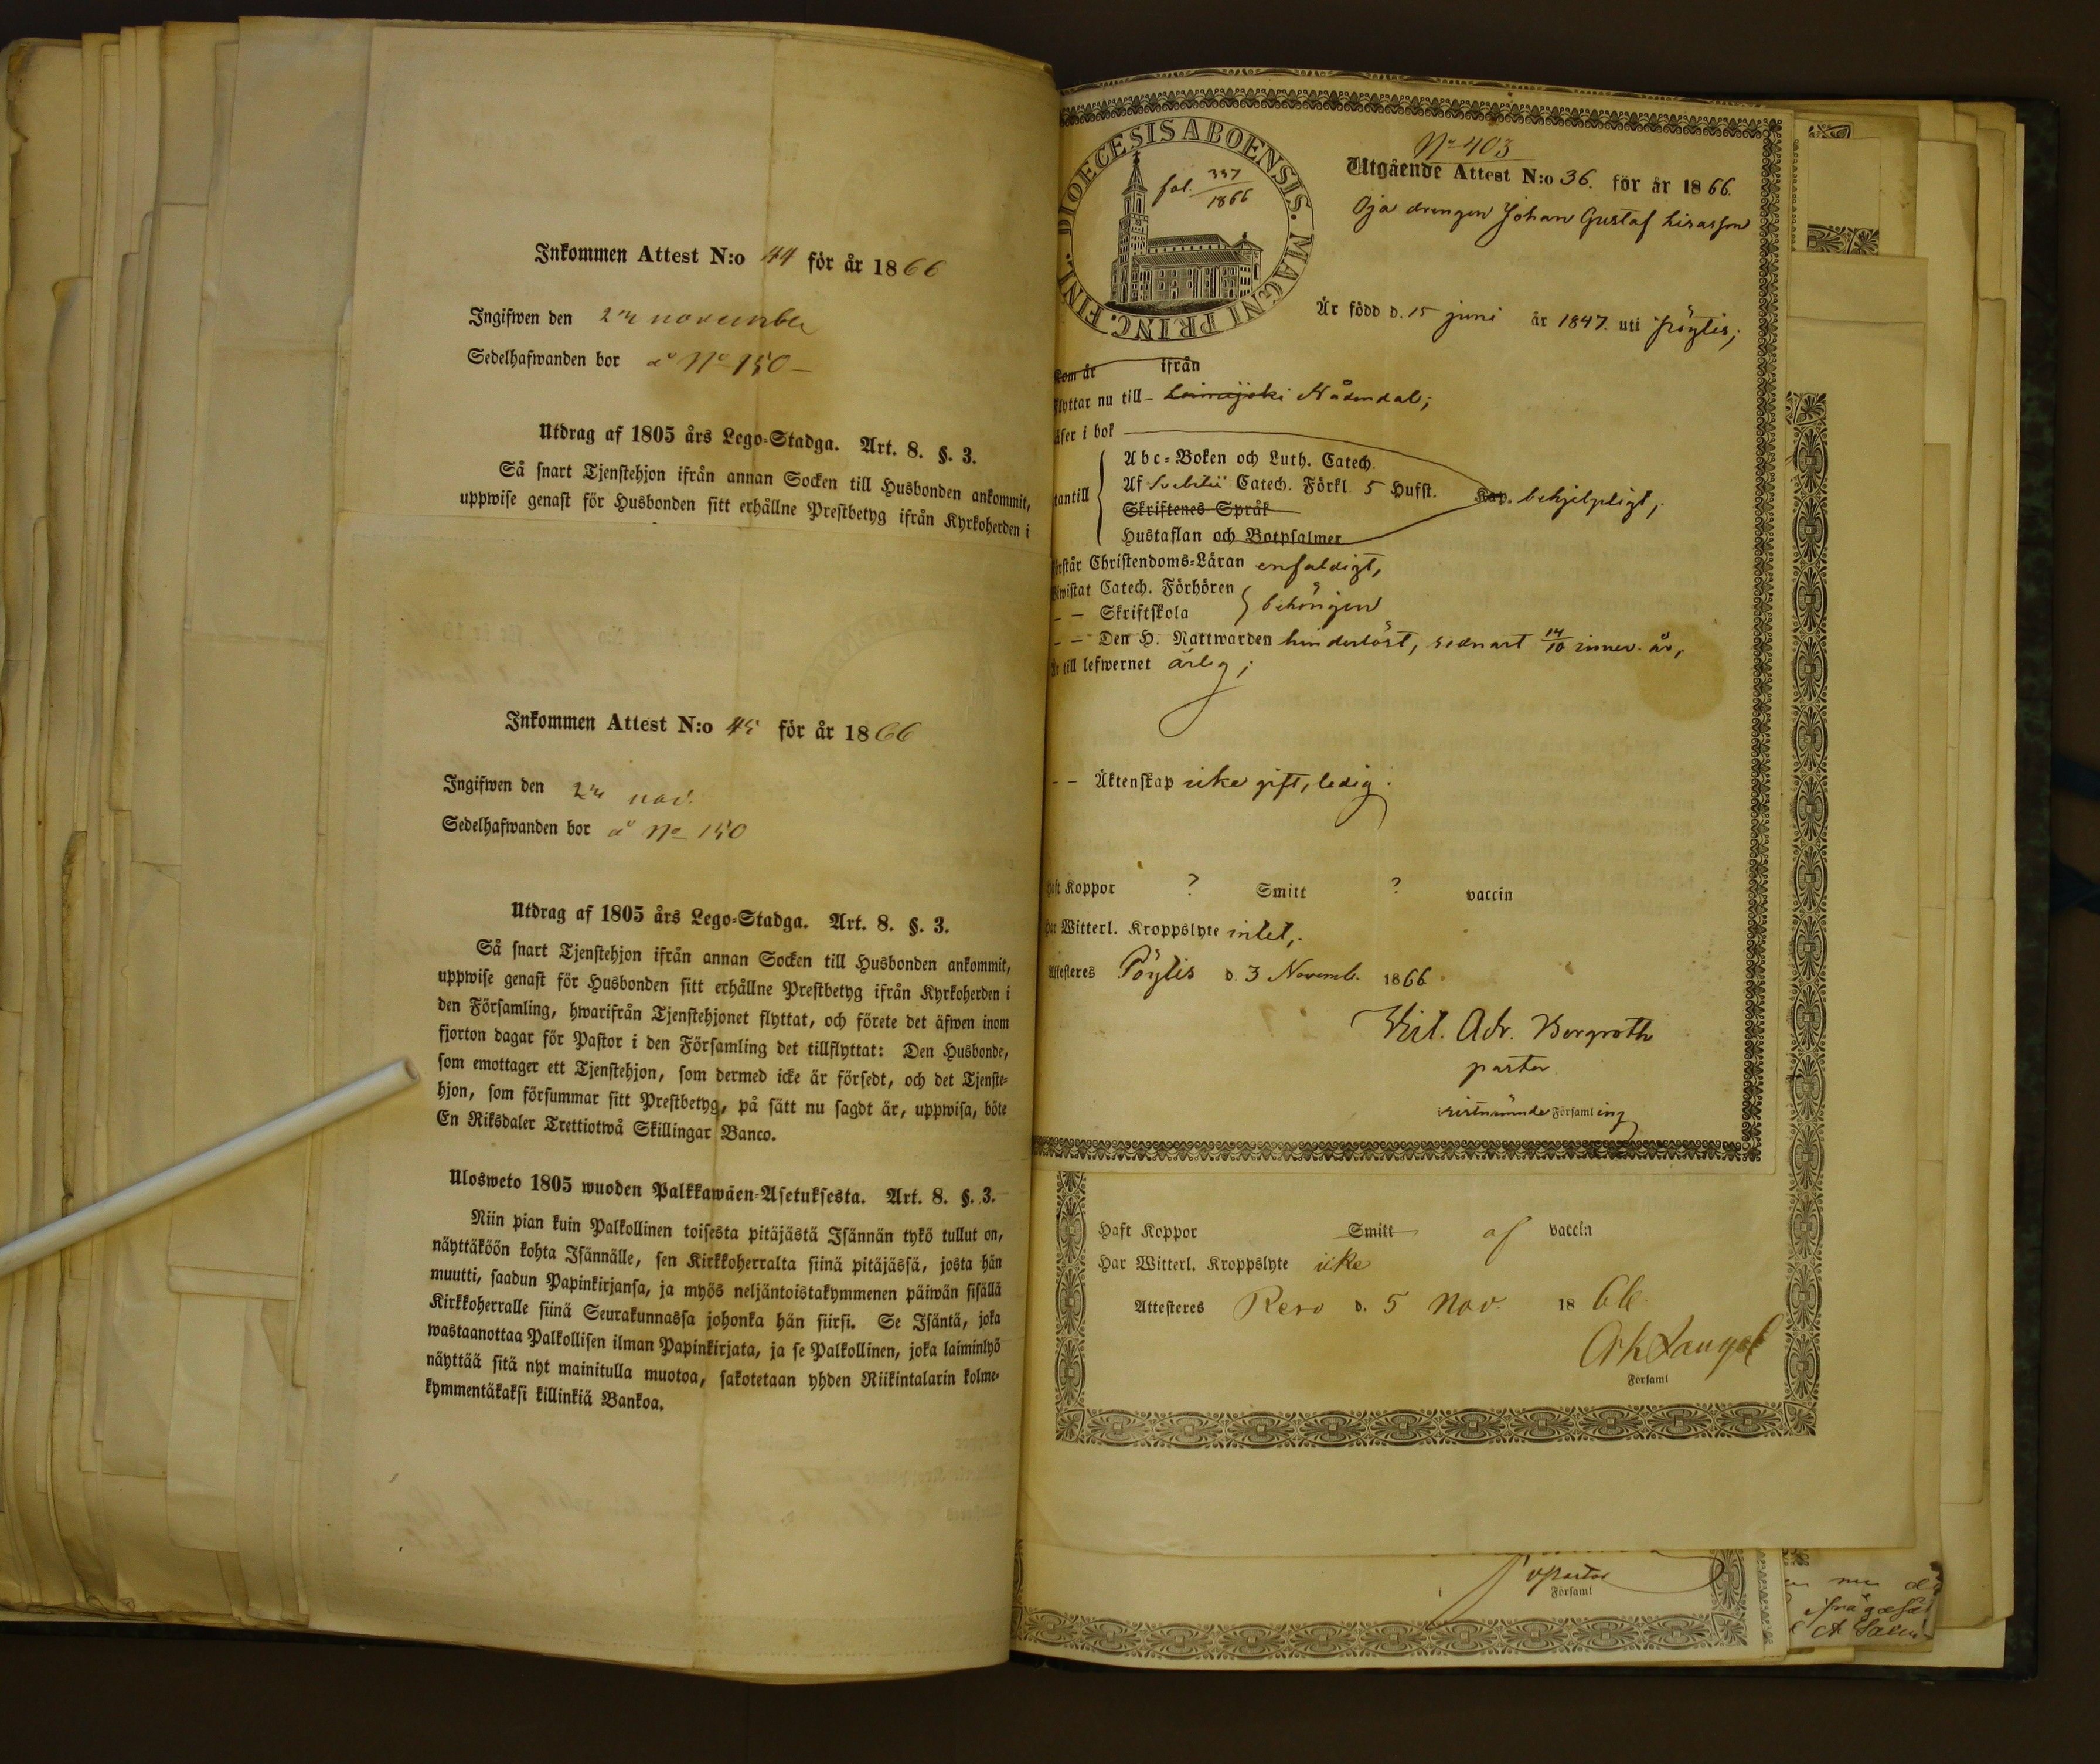 Inkommen Attest N:o 44 för år 1866
Ingifwen den 2ne november
Sedelhafwanden bor å No 150
Utdrag af 1805 års Lego-Stadga. Art. 8. §. 3.
Så snart Tjenstehjon ifrån annan Socken till Husbonden ankommit,
uppwise genast för Husbonden sitt erhållne Prestbetyg ifrån Kyrkoherden i
Inkommen Attest N:o 45 för år 1866
Ingifwen den 2ne nov.
Sedelhafwanden bor å No 150
Utdrag af 1805 års Lego-Stadga. Art. 8. §. 3.
Så snart Tjenstehjon ifrån annan Socken till Husbonden ankommit,
uppwise genast för Husbonden sitt erhållne Prestbetyg ifrån Kyrkoherden i
den Församling, hwarifrån Tjenstehjonet flyttat, och förete det äfwen inom
fjorton dagar för Pastor i den Församling det tillflyttat: Den Husbonde,
som emottager ett Tjenstehjon, som dermed icke är försedt, och det Tjenste-
hjon, som försummar sitt Prestbetyg, på sätt nu sagdt är, uppwisa, böte
En Riksdaler Trettiotwå Skillingar Banco.
Ulosweto 1805 wuoden Palkkawäen-Asetuksesta. Art. 8. §. 3.
Niin pian kuin Palkollinen toisesta pitäjästä Isännän tykö tullut on,
näyttäköön kohta Isännälle, sen Kirkkoherralta siinä pitäjässä, josta hän
muutti, saadun Papinkirjansa, ja myös neljäntoistakymmenen päiwän sisällä
Kirkkoherralle siinä Seurakunnassa johonka hän siirsi. Se Isäntä, joka
wastaanottaa Palkollisen ilman Papinkirjata, ja se Palkollinen, joka laiminlyö
näyttää sitä nyt mainitulla muotoa, sakotetaan yhden Riikintalarin kolme-
kymmentäkaksi killinkiä Bankoa.
DIOECESIS ABOENSIS. MAGNI PRINC. FINL.
fol. 337
1866
No 403
Utgående Attest N:o 36. för år 1866.
Oja drengen Johan Gustaf Lisasson
Är född d. 15 juni år 1847. uti Pöytis;
Kom år ifrån
Flyttar nu till Nådendal;
Läser i bok
Abc-Boken och Luth. Catech.
utantill Af Svebilii Catech. Förkl. 5 Hufst. Kap. behjelpligt;
Skriftenes Språk
Hustaflan och Botpsalmer
Förstår Christendoms-Läran enfaldigt,
Bewistat Catech. Förhören
— — Skriftskola behörigen
— — Den H. Nattwarden hinderlöst, sednast 14/10 innev. år,
Är till lefwernet ärlig;
— — Äktenskap icke gift, ledig.
Haft Koppor ? Smitt ? vaccin
Har Witterl. Kroppslyte intet,
Attesteres Pöytis d. 3 Novemb. 1866
Adr. Bergroth
pastor
sistnämnde Församling
Haft Koppor Smitt af vaccin
Har Witterl. Kroppslyte icke
Attesteres Reso d. 5 Nov. 1866.
Församl
v Pastor
Församl